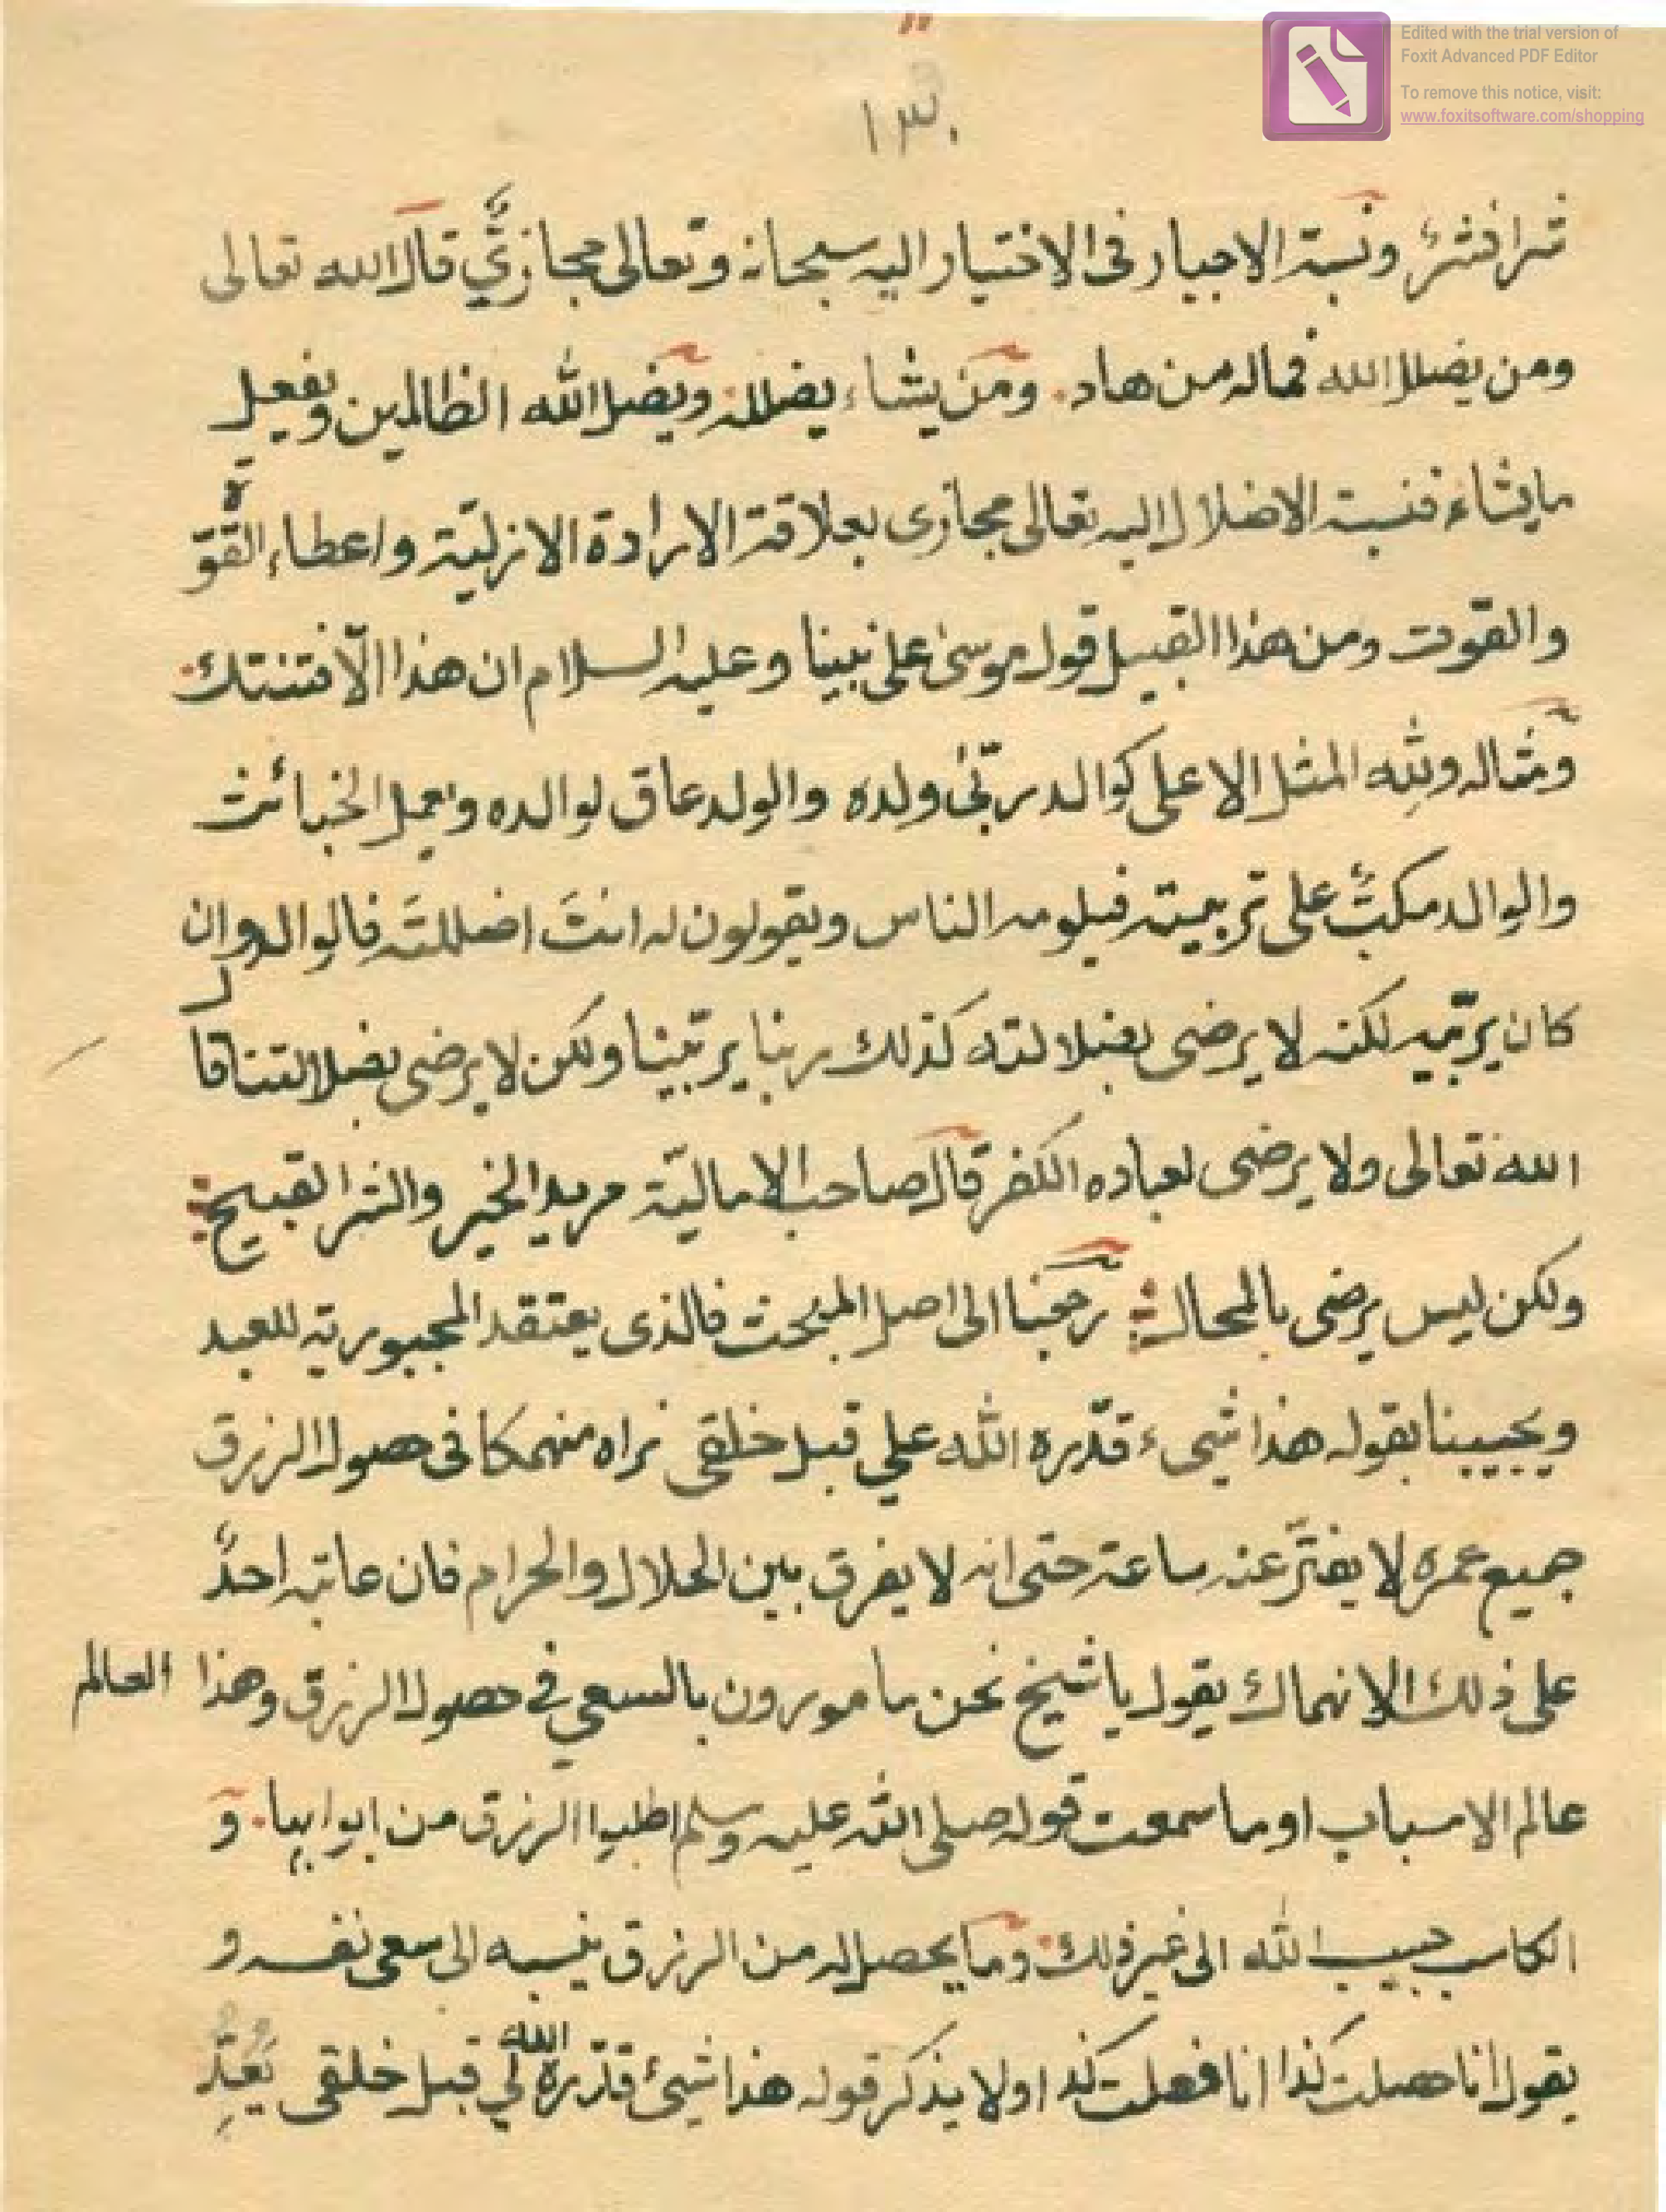 Edited with the trial version of
Foxit Advanced PDF Editor
To remove this notice, visit:
www.foxitsoftware.com/shopping
١٣٠
شرا فشرٌ ونسبة الاجبار فى الاختيار اليه سبحانه وتعالى مجازىٌّ قال الله تعالى
ومن يضلل الله فماله من هاد. ومن يشاء يضلله ويضل الله الظالمين ويفعل
ما يشاء فنسبة الاضلال اليه تعالى مجازى بعلاقة الارادة الازليّة واعطاء القوّة
والقوت ومن هذا القبيل قول موسى على نبينا وعليه السلام ان هذا الّا فتنتك.
ومثاله ولله المثل الاعلى كوالد ربّىٰ ولده والولد عاق لوالده ويعمل الخبائث
والوالد مكبٌّ على تربيته فيلومه الناس ويقولون له انتَ اضللتَه فالوالد وان
كان يربّيه لكنه لا يرضى بضلالته كذلك ربنا يربّينا ولكن لا يرضى بضلالتنا قال
الله تعالى ولا يرضى لعباده الكفر قال صاحب الاماليّة مريد الخير والشر القبيح
ولكن ليس يرضى بالمحال رجعنا الى اصل المبحث فالذى يعتقد المجبورية للعبد
ويجيبنا بقوله هذا شيىء قدّره الله علي قبل خلقى نراه منهمكا فى حصول الرزق
جميع عمره لا يفترّ عنه ساعة حتى انه لا يفرق بين الحلال والحرام فان عاتبه احدٌ
على ذلك الانهماك يقول يا شيخ نحن مامورون بالسعي في حصول الرزق وهذا العالم
عالم الاسباب او ما سمعت قوله صلى الله عليه وسلم اطلبوا الرزق من ابوابها. و
الكاسب حبيب الله الى غير ذلك. وما يحصل له من الرزق ينسبه الى سعى نفسه و
يقول انا حصلت كذا انا فعلت كذا ولا يذكر قوله هذا شيئ قدّره الله لي قبل خلقى